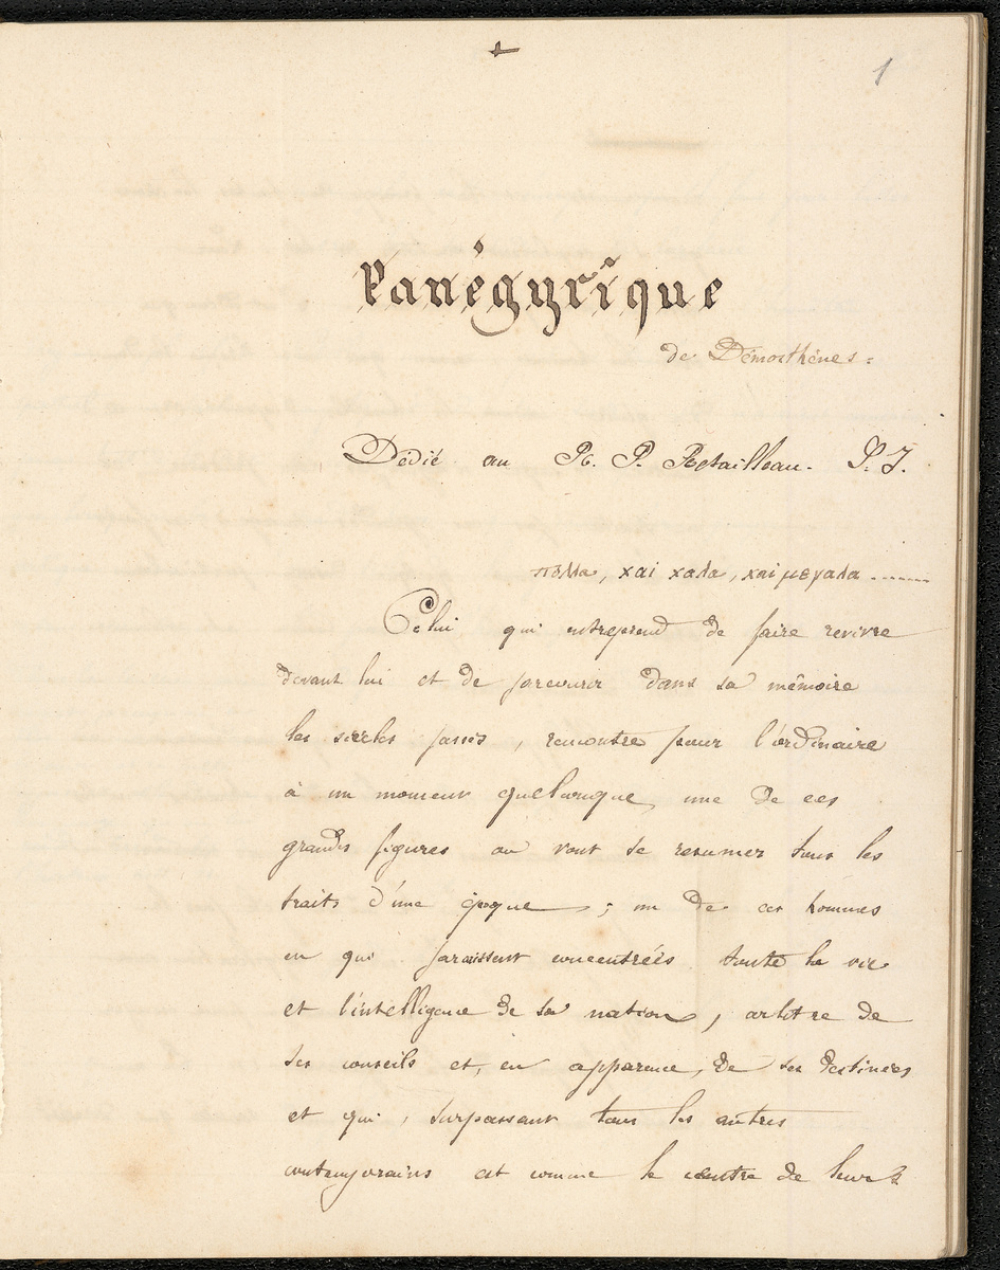 1
Panégyrique
de Démosthènes.
Dédié au R. P. Retailleau. S. J.
πολλα, χαι χαλα, χαι μεγαλα.......
Celui qui entreprend de faire revivre
devant lui et de parcourir dans sa mémoire
les siècles passés, rencontre pour l'ordinaire
à un moment quelconque, une de ces
grandes figures où vont se resumer tous les
traits d'une époque ; un de ces hommes
en qui paraissent concentrées toute la vie
et l'intelligence de sa nation, arbitre de
ses conseils et, en apparence, de ses destinées
et qui, surpassant tous les autres
contemporains est comme le centre de leurs